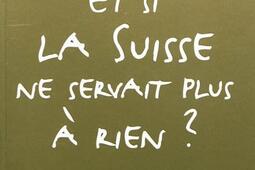 ET SI
LA SUISSE
NE SERVAIT PLUS
À RIEN ?